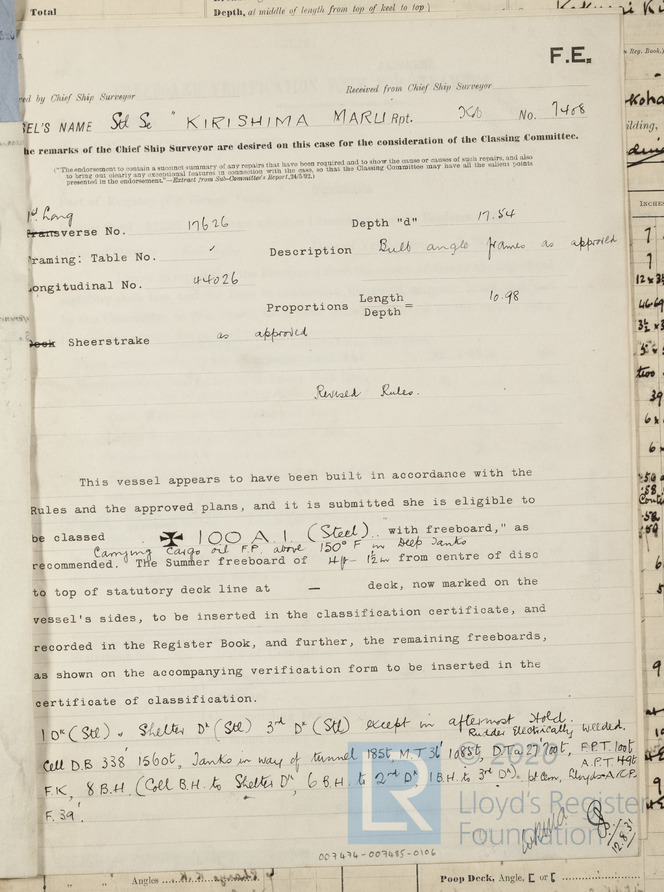 Total
Depth, at middle of length from top of keel to top
F.E.
ed by Chief Ship Surveyor
Received from Chief Ship Surveyor
SEL'S NAME Stl Sc "KIRISHIMA MARU Rpt. No. 7408
he remarks of the Chief Ship Surveyor are desired on this case for the consideration of the Classing Committee.
("The endorsement to contain a succinct summary of any repairs that have been required and to show the cause or causes of such repairs, and also
to bring out clearly any exceptional features in connection with the case, so that the Classing Committee may have all the salient points
presented in the endorsement."—Extract from Sub-Committee's Report, 24/5/92.)
1st Long
Transverse No. 17626 Depth "d" 17.54
Framing: Table No. ✓ Description Bulb angle frames as approved
Longitudinal No. 44026
Proportions Length/Depth = 10.98
Deck Sheerstrake as approved
Revised Rules.
This vessel appears to have been built in accordance with the
Rules and the approved plans, and it is submitted she is eligible to
be classed ✠ 100 A.1. (Steel). "with freeboard," as
Carrying Cargo oil F.P. above 150° F in Deep Tanks
recommended. The Summer freeboard of 4ft - 1½in from centre of disc
to top of statutory deck line at — deck, now marked on the
vessel's sides, to be inserted in the classification certificate, and
recorded in the Register Book, and further, the remaining freeboards,
as shown on the accompanying verification form to be inserted in the
certificate of classification.
1 Dk (Stl) & Shelter Dk (Stl) 3rd Dk (Stl) except in aftermost Hold.
Rudder Electrically Welded.
Cell D.B 338' 1560t, Tanks in way of tunnel 185t, M.T 36' 1085t, D.T.a 27' 700t, F.P.T. 100t
A.P.T 49t
F.K, 8 B.H. (Coll B.H. to Shelter Dk, 6 B.H. to 2nd Dk, 1 B.H. to 3rd Dk). pt Cem, Lloyds A & CP.
F. 39'.
12.8.31
© 2020
Lloyd's Register
Foundation
007474-007485-0106
Angles
Poop Deck, Angle, [ or [